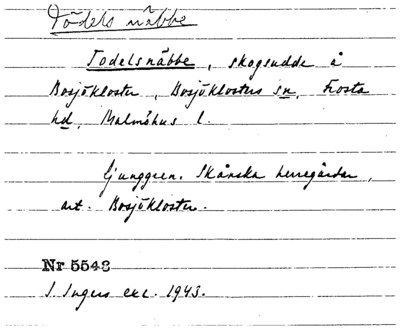 Tödels näbbe
Todelsnäbbe, skogsudde å
Bosjökloster, Bosjöklosters sn, Frosta
hd, Malmöhus l.
Ljunggren. Skånska herregårdar,
art. Bosjökloster.
Nr 5543
I. Ingers exc. 1943.